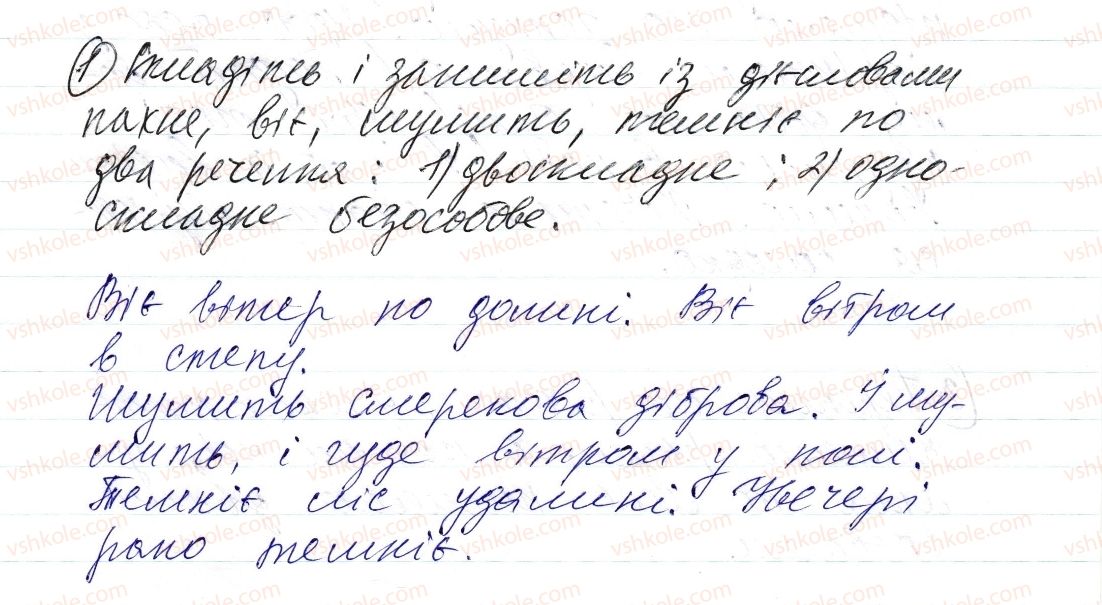 1) Складіть і запишіть із дієсловами
пахне, віє, шумить, темніє по
два речення: 1) двоскладне; 2) одно-
складне безособове.
Віє вітер по долині. Віє вітром
в степу.
Шумить смерекова діброва. І шу-
мить, і гуде вітром у полі.
Темніє ліс удалині. Увечері
рано темніє.